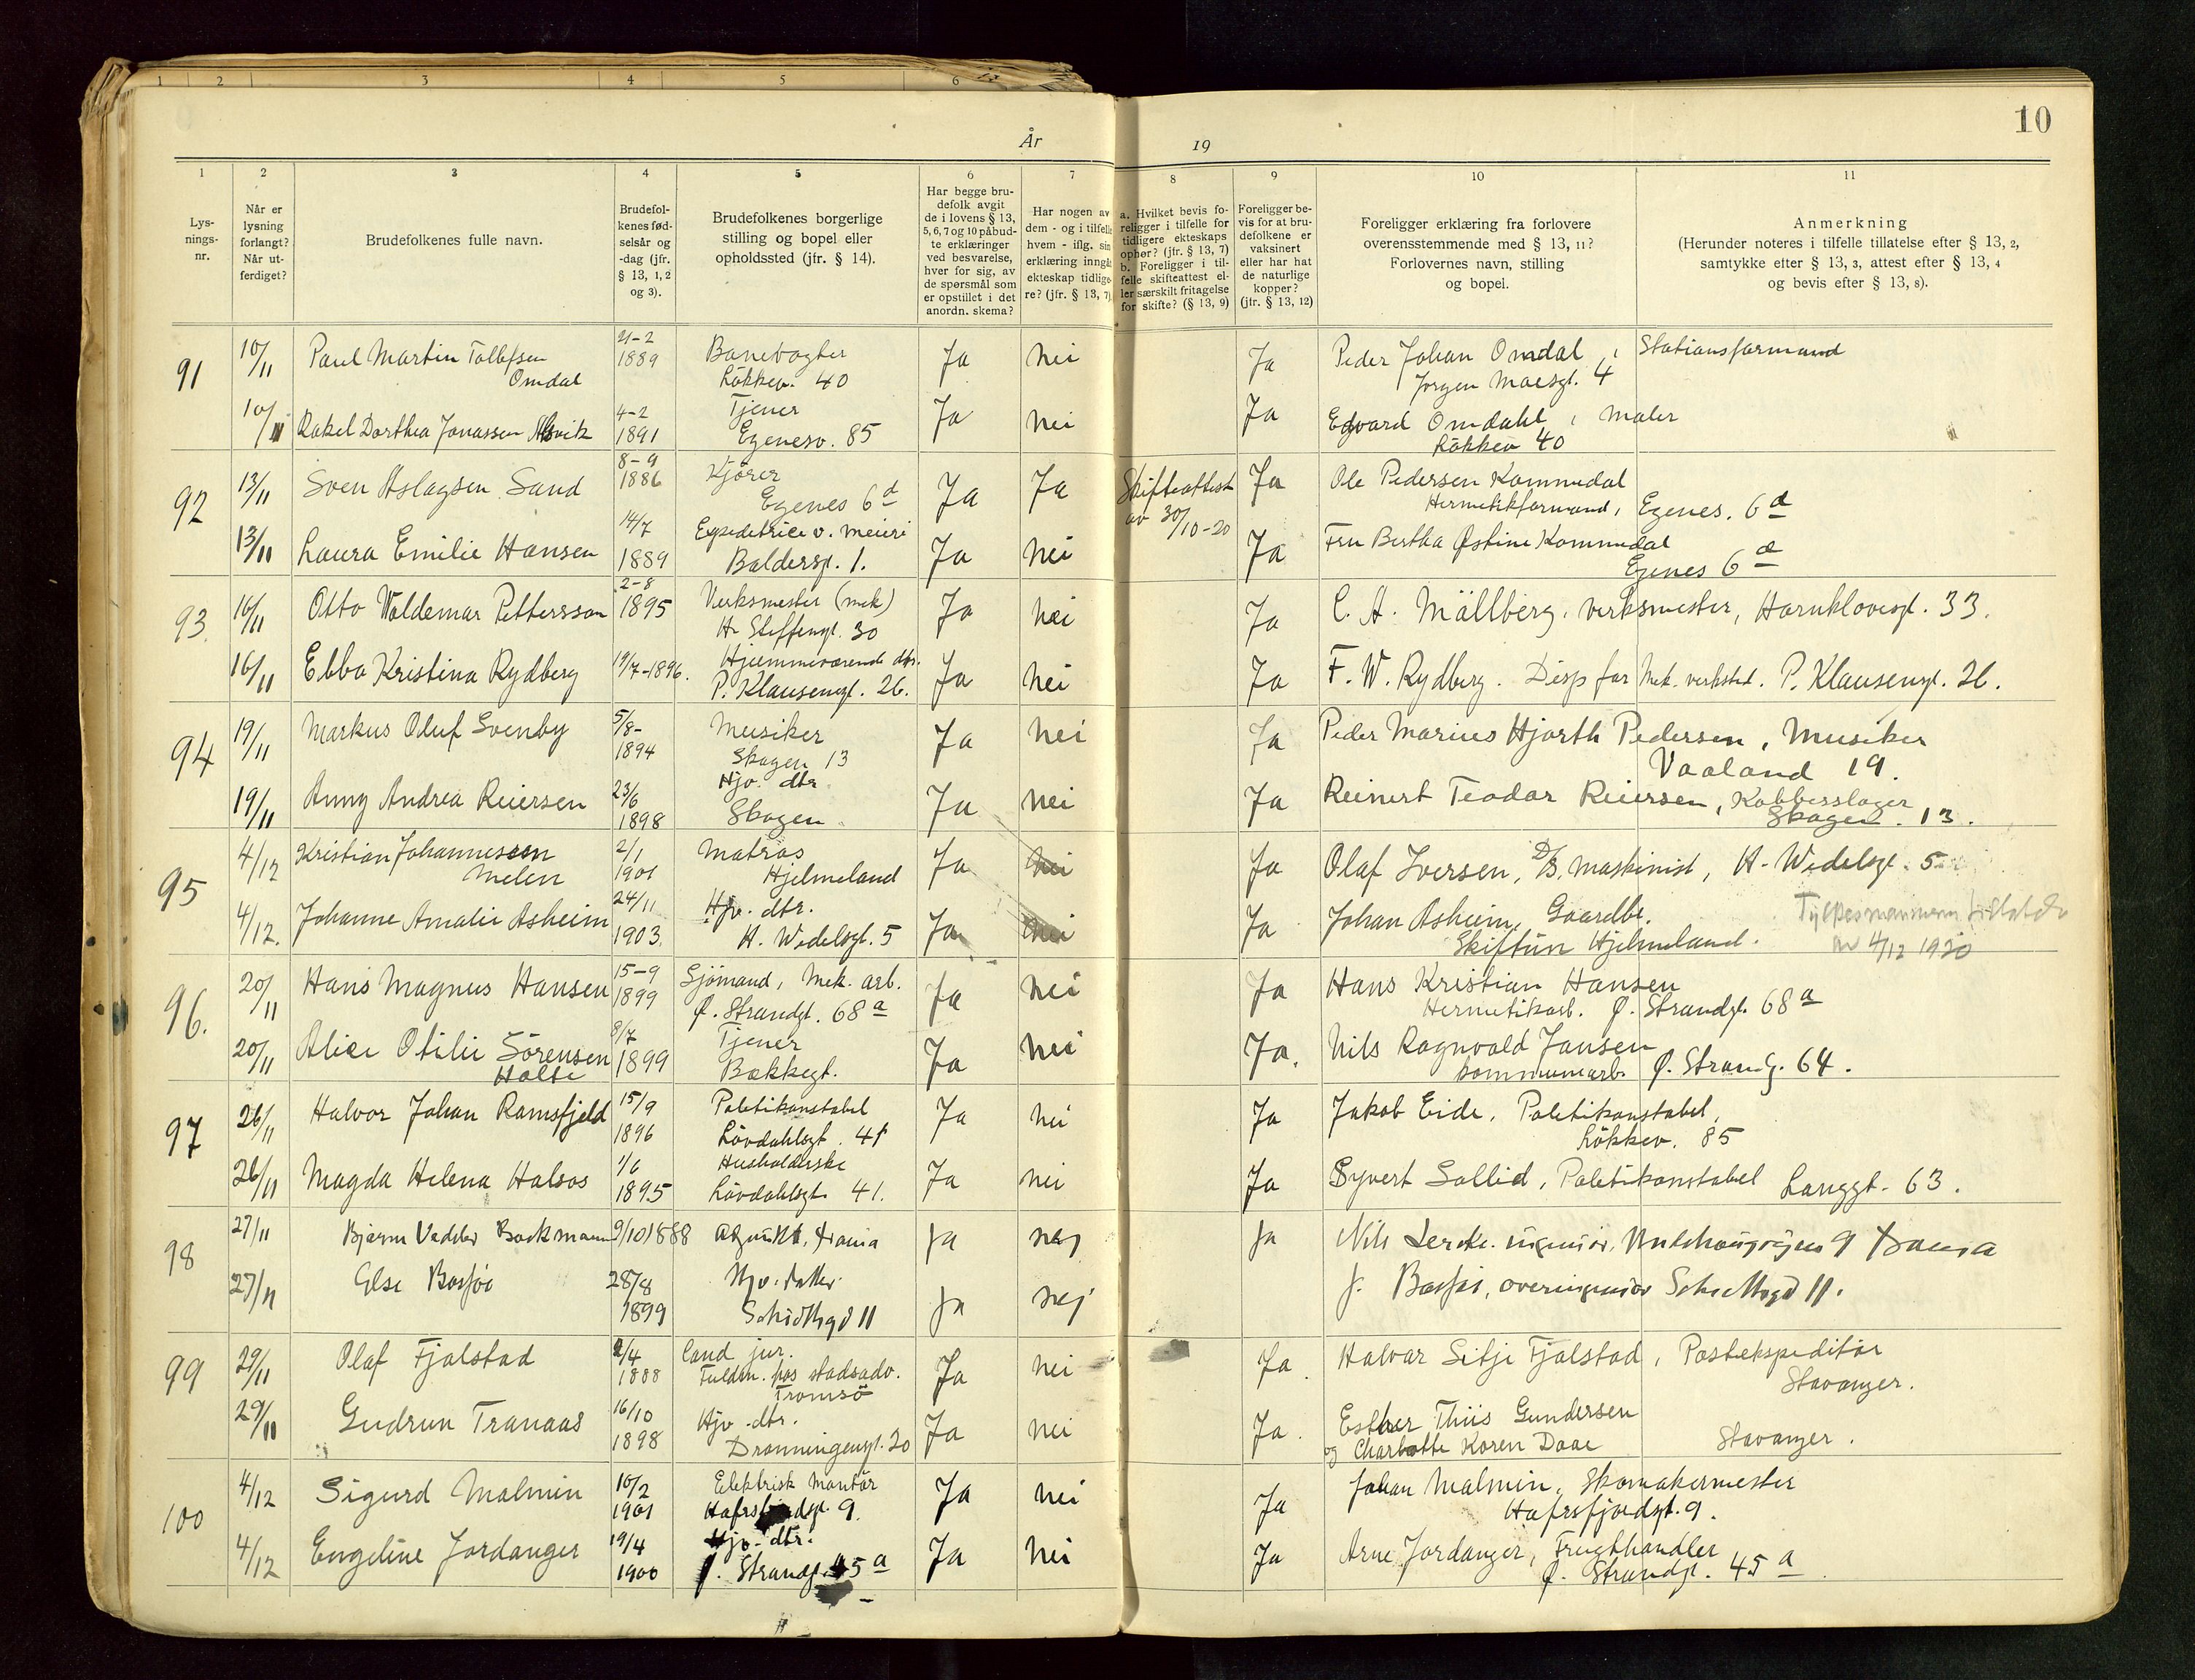 1 2 3 4 5 6
10
År 19
1 2 3 4 5 6 7 8 9 10 11
Lys-
nings-
nr.
Når er
lysning
forlangt?
Når ut-
ferdiget?
Brudefolkenes fulle navn.
Brudefol-
kenes fød-
selsår og
-dag (jfr.
§ 13, 1, 2
og 3).
Brudefolkenes borgerlige
stilling og bopel eller
opholdssted (jfr. § 14).
Har begge bru-
defolk avgit
de i lovens § 13,
5, 6, 7 og 10 påbud-
te erklæringer
ved besvarelse,
hver for sig, av
de spørsmål som
er opstillet i det
anordn. skema?
Har nogen av
dem - og i tilfelle
hvem - iflg. sin
erklæring inngå
ekteskap tidlige-
re? (jfr. § 13, 7)
a. Hvilket bevis fo-
religger i tilfelle for
tidligere ekteskaps
ophør? (jfr. § 13, 7)
b. Foreligger i til-
felle skifteattest el-
ler særskilt fritagelse
for skifte? (§ 13, 9)
Foreligger be-
vis for at bru-
defolkene er
vaksinert
eller har hat
de naturlige
kopper?
(jfr. § 13, 12)
Foreligger erklæring fra forlovere
overensstemmende med § 13, 11?
Forlovernes navn, stilling
og bopel.
Anmerkning
(Herunder noteres i tilfelle tillatelse efter § 13, 2,
samtykke efter § 13, 3, attest efter § 13, 4
og bevis efter § 13, 8).
91 10/11 Paul Martin Tollefsen 21-2 Banevogter Ja Nei Ja Peder Johan Omdal, Stationsformand
Omdal 1889 Løkkev. 40 Jørgen Moesgt. 4
10/11 Rakel Dorthea Jonassen 4-2 Tjener Ja Nei Ja Edvard Omdahl, Maler
1891 Egenesv. 85 Løkkev 40
92 13/11 Sven Aslagsen Sand 8-9 Kjører Ja Ja Skifteattest Ja Ole Pedersen Kommedal
1886 Egenes 6d av 30/10-20 Hermetikformand, Egenes. 6d
13/11 Laura Emilie Hansen 14/7 Expeditrice v. meieri Ja Nei Ja Fru Bertha Østine Kommedal
1889 Baldersgt. 1. Egenes 6d
93 16/11 Otto Valdemar Pettersson 2-8 Verksmester (mek) Ja Nei Ja C. A. Mällberg, verksmester, Harukløvesgt. 33.
1895 Hr Steffengt. 30
16/11 Ebba Kristina Rydberg 19/7-1896. Hjemmeværende dtr. Ja Nei Ja F. W. Rydberg. Disp for Mek. verksted. P. Klausengt. 26.
P. Klausengt. 26.
94 19/11 Markus Oluf Svenby 5/8- Musiker Ja Nei Ja Peder Marius Hjorth Pedersen, Musiker
1894 Skagen 13 Vaaland 19.
19/11 Anny Andrea Reiersen 23/6 Hjv. dtr Ja Nei Ja Reinert Teodor Reiersen, Kobberslager
1898 Skagen Skagen. 13.
95 4/12 Kristian Johannessen 2/1 Matros Ja Nei Ja Olaf Iversen, D/S. Maskinist, H. Wedelsgt. 5
Melen 1901 Hjelmeland
4/12. Johanne Amalie Asheim 24/11 Hjv. dtr. Ja Nei Ja Johan Asheim, Gaardbr.
1903. H. Wedelsgt. 5 Skiftun Hjelmeland. Fylkesmannens tillatelse
av 4/12 1920
96. 20/11 Hans Magnus Hansen 15-9 Sjømand, Mek. arb. Ja Nei Ja Hans Kristian Hansen
1899 Ø. Strandgt. 68a Hermetikarb. Ø. Strandgt. 68a
20/11 Alice Otilie Sørensen 8/7 Tjener Ja Nei Ja. Nils Ragnvald Jansen
Holte 1899 Bakkegt. kommunearb. Ø. Strandg. 64.
97 26/11 Halvor Johan Ramsfjeld 15/9 Politikonstabel Ja Nei Ja Jakob Eide, Politikonstabel,
1896 Løvdahlsgt. 41 Løkkev. 85
26/11 Magda Helena Halsos 1/6 Husholderske Ja Nei Ja Syvert Sollid, Politikonstabel Langgt. 63.
1895 Løvdahlsgt 41.
98 27/11 Bjarne Vedder Bockmann 9/10 1888 Ja nej Ja Nils Lerche. ingeniør, 9
27/11 Else Bosjøe 28/8 Hjv. datter Ja nej J. Bosjøe, overingeniør 11.
1899 11
99 29/11 Olaf Fjalstad 2/4 Cand jur. Ja Nei Ja. Halvar Sitje Fjalstad, Postekspeditør
1888 Fuldm. hos stadsadv. Stavanger.
Tromsø
29/11 Gudrun Tranaas 16/10 Hjv. dtr. Ja Nei Ja. Esther Thiis Gundersen
1898 Dronningensgt. 20 og Charlotte Koren Daae Stavanger.
100 4/12 Sigurd Malmin 10/2 Elektrisk Montør Ja Nei Ja Johan Malmin, Skomakermester
1901 Hafrsfjordgt. 9. Hafrsfjordgt. 9.
4/12 Engeline Jordanger 19/4 Hjv. dtr. Ja Nei Ja Arne Jordanger, Frugthandler
1900 Ø. Strandgt. 45a Ø. Strandgt. 45a